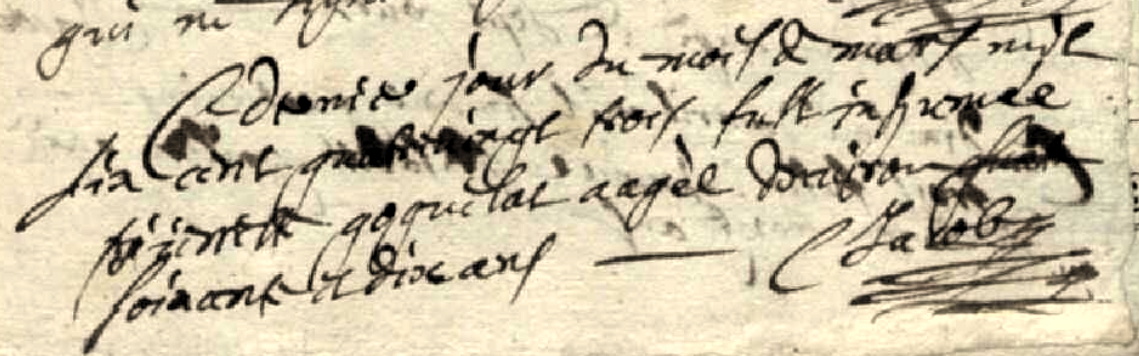 qui ne
Le dernier jour du mois de mars mil
six cent quatrevingt trois fust inhumee
perinette goguelat aagee denviron
soixante et dix ans
Jacob